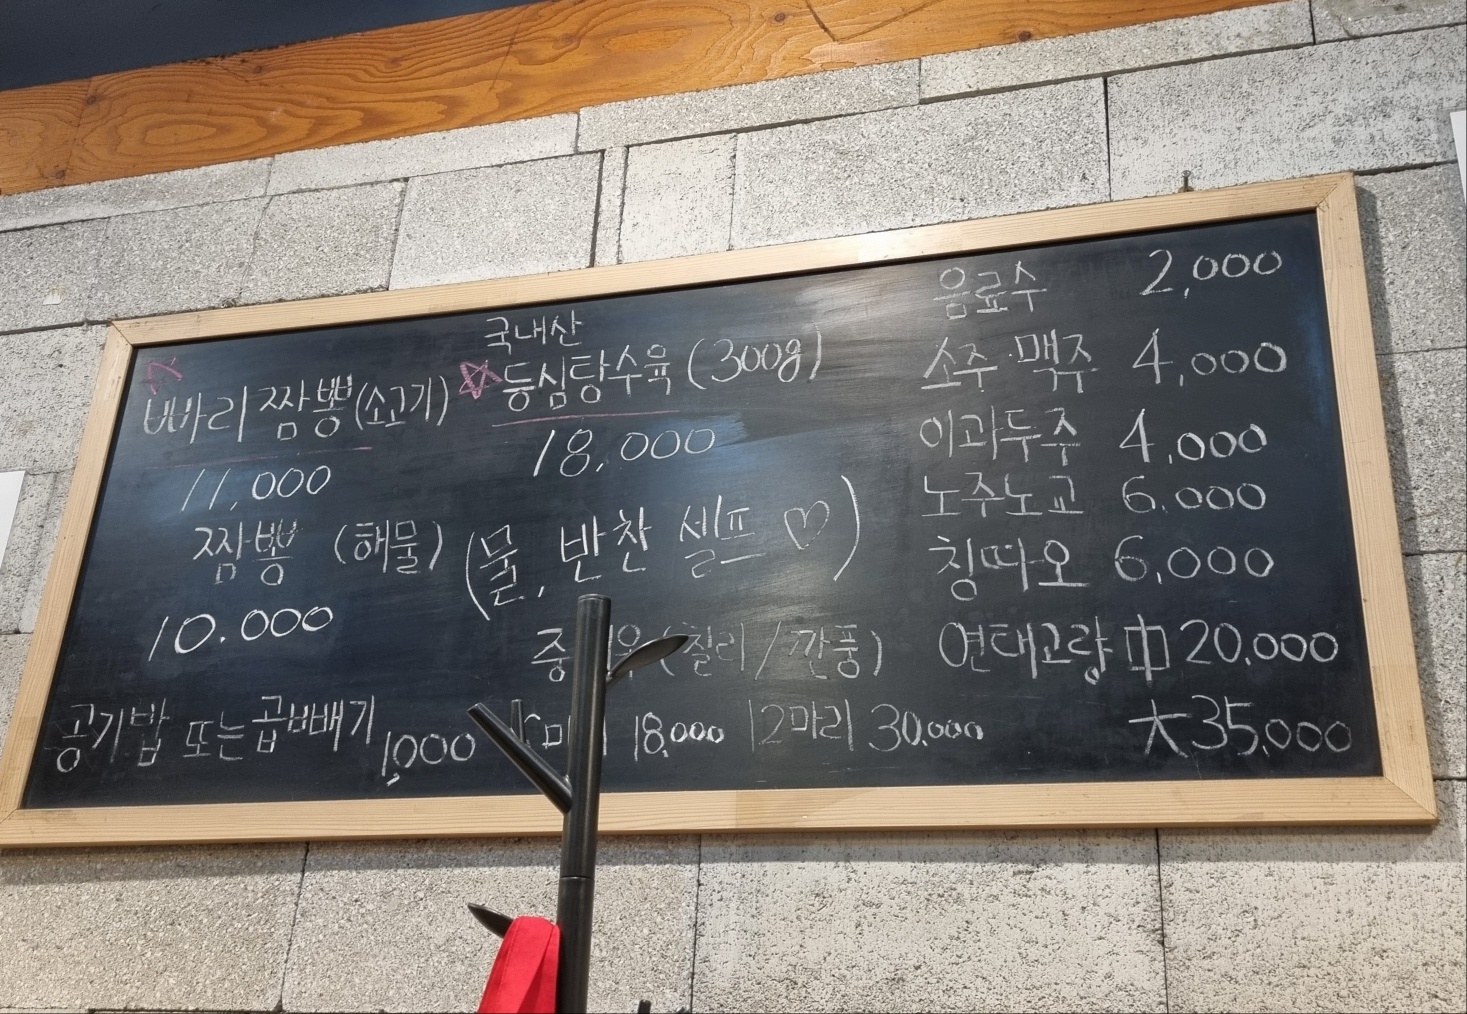 빠리짬뽕(소고기)
11,000
짬뽕 (해물)
10.000
공기밥 또는 곱빼기 1,000
국내산
등심탕수육 (300g)
18,000
(물, 반찬 셀프 ♡)
중 (칠리/깐풍)
18,000 12마리 30,000
음료수 2,000
소주·맥주 4,000
이과두주 4,000
노주노교 6.000
칭따오 6,000
연태고량 中 20,000
大 35,000